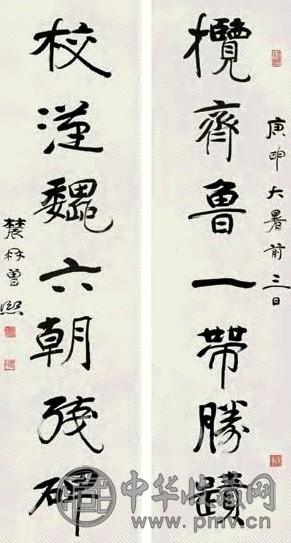 攬齊魯一帶勝蹟
庚申大暑前三日
校漢魏六朝殘碑
農髯曾熙
中华收藏网
www.pmv.cn